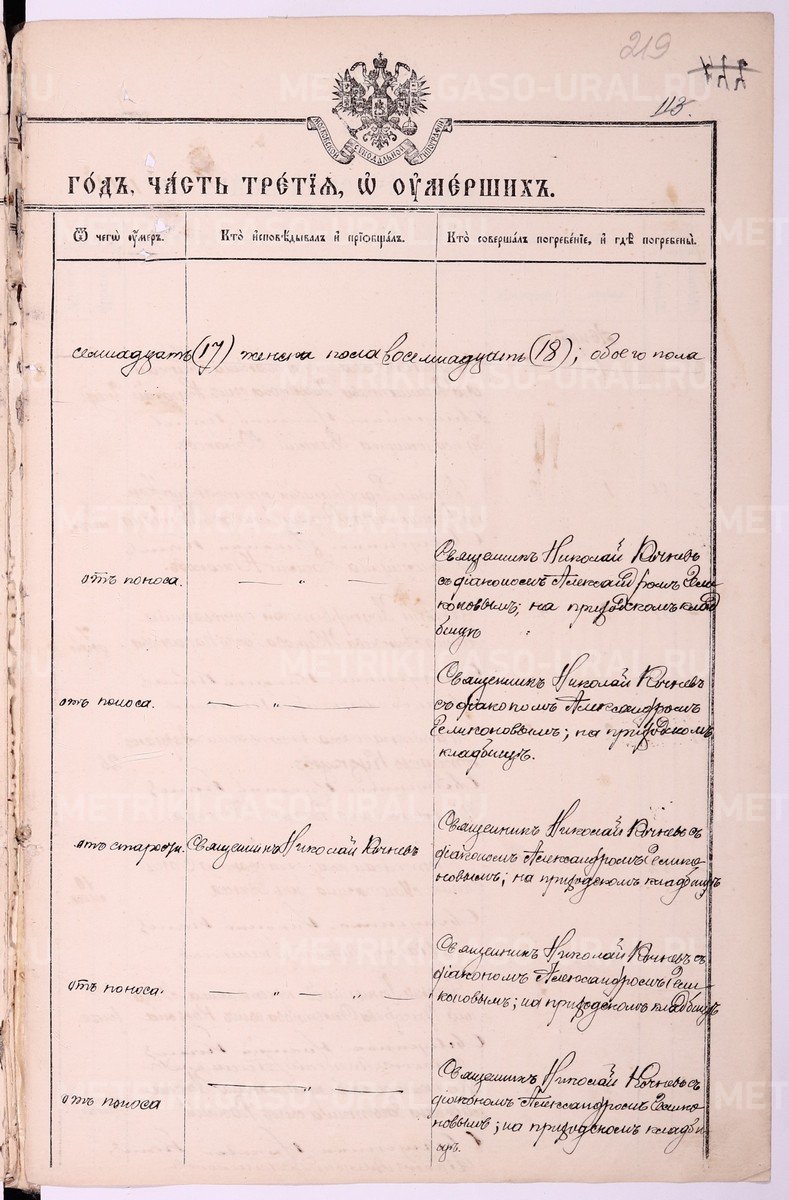 219
113.
МОСКОВСКОЙ СѴНОДАЛЬНОЙ ТИПОГРАФІИ
ГО́ДЪ, ЧА́СТЬ ТРЕ́ТІѦ, Ѡ҆ ОУ҆МЕ́РШИХЪ.
Ѿ чегѡ̀ оу҆́меръ.
Кто̀ и҆сповѣ́дывалъ и҆ пріѻбща́лъ.
Кто̀ соверша́лъ погребе́ніе, и҆ гдѣ̀ погребены̀.
семнадцать (17) женска пола восемнадцать (18); обоего пола
отъ поноса.
— „ —
Священникъ Николай Кычевъ
съ діакономъ Александромъ Гели
коновымъ; на приходскомъ клад
бищѣ
отъ поноса.
— „ —
Священникъ Николай Кычевъ
съ діакономъ Александромъ
Геликоновымъ; на приходскомъ
кладбищѣ.
отъ старости.
Священникъ Николай Кычевъ
Священникъ Николай Кычевъ съ
діакономъ Александромъ Гелико
новымъ; на приходскомъ кладбищѣ
отъ поноса.
— „ — „ —
Священникъ Николай Кычевъ съ
діакономъ Александромъ Гели
коновымъ; на приходскомъ кладбищѣ
отъ поноса
— „ —
Священникъ Николай Кычевъ съ
діакономъ Александромъ Гелико
новымъ; на приходскомъ кладби
щѣ.
METRIKI.GASO-URAL.RU